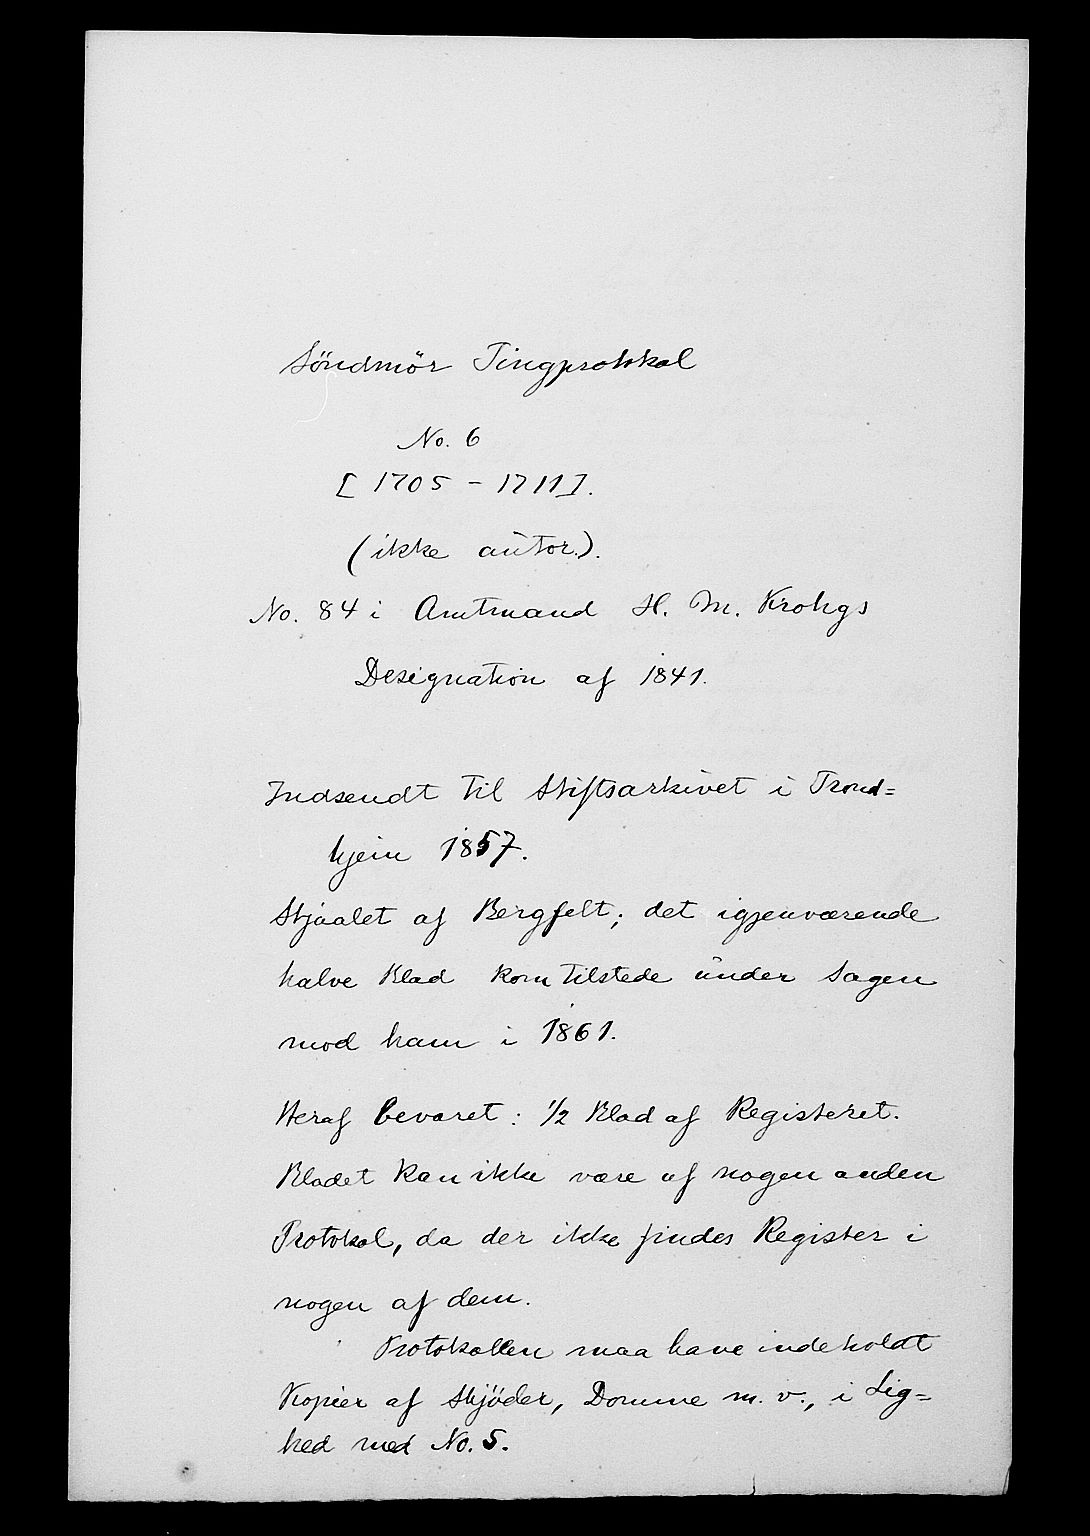 Söndmör Tingprotokol
No. 6
[1705 - 1711].
(ikke autor.).
No. 84 i Amtmand H. M. Krohgs
Designation af 1841.
Indsendt til Stiftsarkivet i Trond=
hjem 1857.
Stjaalet af Bergfelt; det igjenværende
halve Blad kom tilstede under Sagen
mod ham i 1861.
Heraf bevaret: 1/2 Blad af Registeret.
Bladet kan ikke være af nogen anden
Protokol, da der ikke findes Register i
nogen af dem.
Protokollen maa have indeholdt
Kopier af Skjöder, Domme m. v., i Lig=
hed med No. 5.